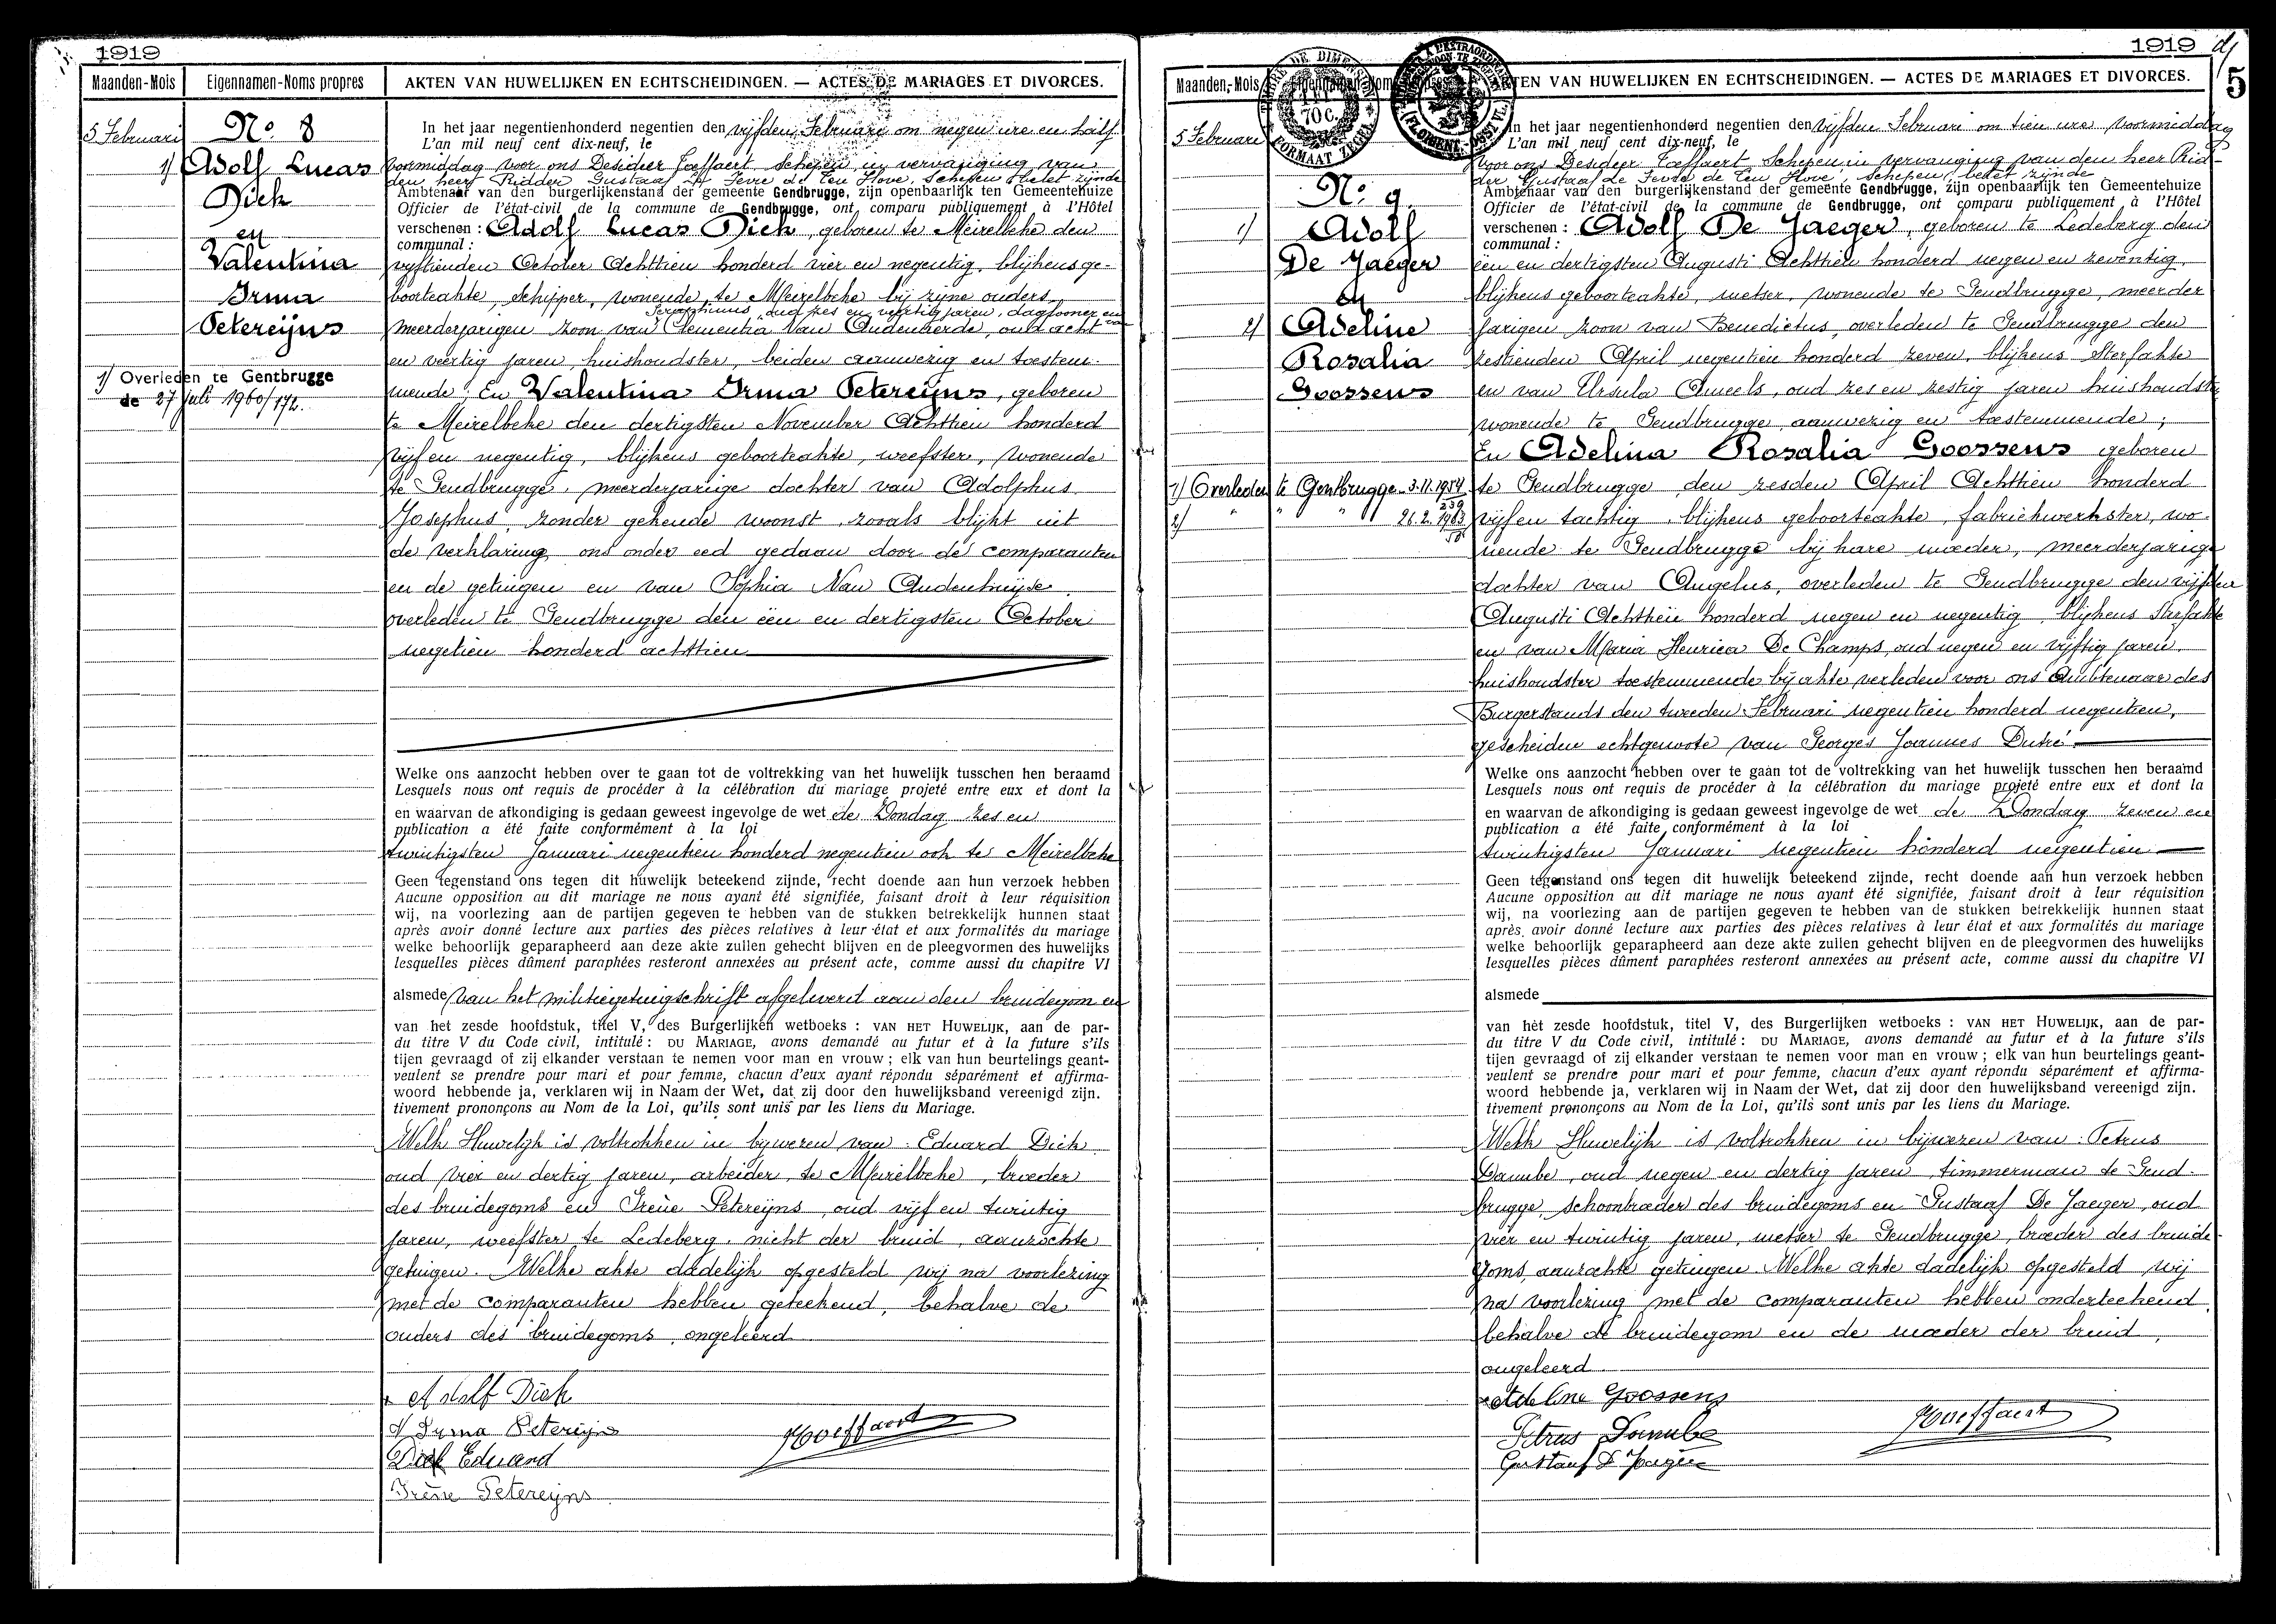 1919
Maanden-Mois
Eigennamen-Noms propres
AKTEN VAN HUWELIJKEN EN ECHTSCHEIDINGEN. — ACTES DE MARIAGES ET DIVORCES.
5 Februari
No. 8
1) Adolf Lucas
Dick
en
Valentina
Irma
Petereijns
1) Overleden te Gentbrugge
de 27 juli 1960/172.
In het jaar negentienhonderd negentien den vijfden Februari om negen ure en half
L'an mil neuf cent dix-neuf, le
voormiddag voor ons Desideer Hoeffaert, Schepen in vervanging van
den heer Ridder Gustaaf de Fevre de Ten Hove, Schepen belet zijnde
Ambtenaar van den burgerlijkenstand der gemeente Gendbrugge, zijn openbaarlijk ten Gemeentehuize
Officier de l'état-civil de la commune de Gendbrugge, ont comparu publiquement à l'Hôtel
verschenen : Adolf Lucas Dick, geboren te Meirelbeke den
communal :
vijftienden October Achttien honderd vier en negentig, blijkens ge-
boorteakte, schipper, wonende te Meirelbeke bij zijne ouders
Seraphinus, oud zes en veertig jaren, daglooner en van
meerderjarigen zoon van Clementia Van Oudenherde, oud acht
en veertig jaren, huishoudster, beiden aanwezig en toestem-
mende; En Valentina Irma Petereijns, geboren
te Meirelbeke den dertigsten November Achttien honderd
vijf en negentig, blijkens geboorteakte, weefster, wonende
te Gendbrugge, meerderjarige dochter van Adolphus
Josephus, zonder gekende woonst, zooals blijkt uit
de verklaring ons onder eed gedaan door de comparanten
en de getuigen en van Sophia Van Oudenhuijse
overleden te Gendbrugge den één en dertigsten October
negetien honderd achttien
Welke ons aanzocht hebben over te gaan tot de voltrekking van het huwelijk tusschen hen beraamd
Lesquels nous ont requis de procéder à la célébration du mariage projeté entre eux et dont la
en waarvan de afkondiging is gedaan geweest ingevolge de wet de Zondag zes en
publication a été faite conformément à la loi
twintigsten Januari negentien honderd negentien ook te Meirelbeke
Geen tegenstand ons tegen dit huwelijk beteekend zijnde, recht doende aan hun verzoek hebben
Aucune opposition au dit mariage ne nous ayant été signifiée, faisant droit à leur réquisition
wij, na voorlezing aan de partijen gegeven te hebben van de stukken betrekkelijk hunnen staat
après avoir donné lecture aux parties des pièces relatives à leur état et aux formalités du mariage
welke behoorlijk geparapheerd aan deze akte zullen gehecht blijven en de pleegvormen des huwelijks
lesquelles pièces dûment paraphées resteront annexées au présent acte, comme aussi du chapitre VI
alsmede van het militiegetuigschrift afgeleverd aan den bruidegom en
van het zesde hoofdstuk, titel V, des Burgerlijken wetboeks : VAN HET HUWELIJK, aan de par-
du titre V du Code civil, intitulé : DU MARIAGE, avons demandé au futur et à la future s'ils
tijen gevraagd of zij elkander verstaan te nemen voor man en vrouw ; elk van hun beurtelings geant-
veulent se prendre pour mari et pour femme, chacun d'eux ayant répondu séparément et affirma-
woord hebbende ja, verklaren wij in Naam der Wet, dat zij door den huwelijksband vereenigd zijn.
tivement prononçons au Nom de la Loi, qu'ils sont unis par les liens du Mariage.
Welk Huwelijk is voltrokken in bijwezen van : Eduard Dick
oud vier en dertig jaren, arbeider, te Meirelbeke, broeder
des bruidegoms en Irène Petereijns, oud vijf en twintig
jaren, weefster te Ledeberg, nicht der bruid, aanzochte
getuigen. Welke akte dadelijk opgesteld wij na voorlezing
met de comparanten hebben geteekend, behalve de
ouders des bruidegoms, ongeleerd
Adolf Dick
Irma Petereijns
Dick Eduard
Irène Petereijns
Hoeffaert
1919
5
Maanden-Mois
Eigennamen-Noms propres
AKTEN VAN HUWELIJKEN EN ECHTSCHEIDINGEN. — ACTES DE MARIAGES ET DIVORCES.
70 c.
FORMAAT ZEGEL
5 Februari
No. 9.
1) Adolf
De Jaeger
en
2) Adeline
Rosalia
Goossens
1) Overleden te Gentbrugge 3.11.1954
239
2) " " " 26.2.1963
58
In het jaar negentienhonderd negentien den vijfden Februari om tien ure voormiddag
L'an mil neuf cent dix-neuf, le
voor ons Desideer Hoeffaert Schepen in vervanging van den heer Rid-
der Gustaaf de Fevre de Ten Hove, Schepen, belet zijnde
Ambtenaar van den burgerlijkenstand der gemeente Gendbrugge, zijn openbaarlijk ten Gemeentehuize
Officier de l'état-civil de la commune de Gendbrugge, ont comparu publiquement à l'Hôtel
verschenen : Adolf De Jaeger, geboren te Ledeberg den
communal :
één en dertigsten Augusti Achttien honderd negen en zeventig,
blijkens geboorteakte, metser, wonende te Gendbrugge, meerder
jarigen zoon van Benedictus, overleden te Gendbrugge den
zestienden April negentien honderd zeven, blijkens sterfakte
en van Ursula Ameels, oud zes en zestig jaren huishoudster
wonende te Gendbrugge, aanwezig en toestemmende;
En Adelina Rosalia Goossens geboren
te Gendbrugge den zesden April Achttien honderd
vijf en tachtig, blijkens geboorteakte, fabriekwerkster, wo-
nende te Gendbrugge bij hare moeder, meerderjarige
dochter van Angelus, overleden te Gendbrugge den vijfden
Augusti Achttien honderd negen en negentig, blijkens sterfakte
en van Maria Henrica De Champs, oud negen en vijftig jaren,
huishoudster toestemmende bij akte verleden voor ons Ambtenaar des
Burgerstands den tweeden Februari negentien honderd negentien,
gescheiden echtgenoote van Georges Joannes Dutré
Welke ons aanzocht hebben over te gaan tot de voltrekking van het huwelijk tusschen hen beraamd
Lesquels nous ont requis de procéder à la célébration du mariage projeté entre eux et dont la
en waarvan de afkondiging is gedaan geweest ingevolge de wet de Zondag zeven en
publication a été faite conformément à la loi
twintigsten Januari negentien honderd negentien
Geen tegenstand ons tegen dit huwelijk beteekend zijnde, recht doende aan hun verzoek hebben
Aucune opposition au dit mariage ne nous ayant été signifiée, faisant droit à leur réquisition
wij, na voorlezing aan de partijen gegeven te hebben van de stukken betrekkelijk hunnen staat
après avoir donné lecture aux parties des pièces relatives à leur état et aux formalités du mariage
welke behoorlijk geparapheerd aan deze akte zullen gehecht blijven en de pleegvormen des huwelijks
lesquelles pièces dûment paraphées resteront annexées au présent acte, comme aussi du chapitre VI
alsmede
van het zesde hoofdstuk, titel V, des Burgerlijken wetboeks : VAN HET HUWELIJK, aan de par-
du titre V du Code civil, intitulé : DU MARIAGE, avons demandé au futur et à la future s'ils
tijen gevraagd of zij elkander verstaan te nemen voor man en vrouw ; elk van hun beurtelings geant-
veulent se prendre pour mari et pour femme, chacun d'eux ayant répondu séparément et affirma-
woord hebbende ja, verklaren wij in Naam der Wet, dat zij door den huwelijksband vereenigd zijn.
tivement prononçons au Nom de la Loi, qu'ils sont unis par les liens du Mariage.
Welk Huwelijk is voltrokken in bijwezen van : Petrus
Danube, oud negen en dertig jaren, timmerman te Gend-
brugge, schoonbroeder des bruidegoms en Gustaaf De Jaeger, oud
vier en twintig jaren, metser te Gendbrugge, broeder des bruide-
goms, aanzochte getuigen. Welke akte dadelijk opgesteld wij
na voorlezing met de comparanten hebben onderteekend,
behalve de bruidegom en de moeder der bruid,
ongeleerd
Adeline Goossens
Petrus Danube
Gustaaf D Jaeger
Hoeffaert